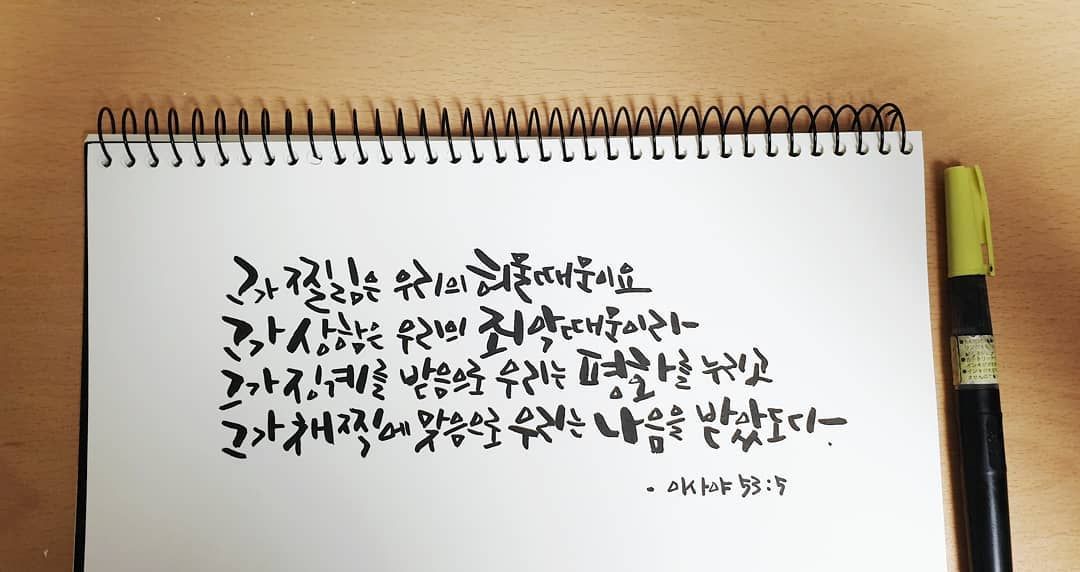 그가 찔림은 우리의 허물때문이요
그가 상함은 우리의 죄악때문이라
그가 징계를 받음으로 우리는 평화를 누리고
그가 채찍에 맞음으로 우리는 나음을 받았도다.
- 이사야 53:5